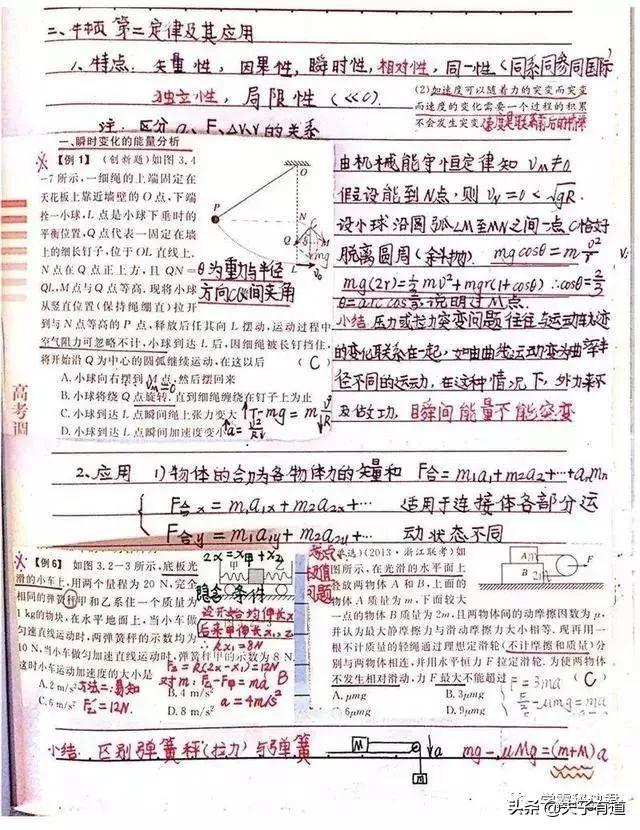 二、牛顿第二定律及其应用
1、特点：矢量性，因果性，瞬时性，相对性，同一性（同系同物同国际
独立性，局限性（<<c）.
(2)加速度可以随着力的突变而突变
而速度的变化需要一个过程的积累
不会发生突变
注：区分a、F、ΔV、V的关系
一、瞬时变化的能量分析
【例1】(创新题)如图3.4
-7所示,一细绳的上端固定在
天花板上靠近墙壁的O点,下端
拴一小球,L点是小球下垂时的
平衡位置,Q点代表一固定在墙
上的细长钉子,位于OL直线上,
N点在Q点正上方,且QN=
QL,M点与Q点等高.现将小球
从竖直位置(保持绳绷直)拉开
到与N点等高的P点,释放后任其向L摆动,运动过程中
空气阻力可忽略不计,小球到达L后,因细绳被长钉挡住,
将开始沿Q为中心的圆弧继续运动,在这以后 (C)
A.小球向右摆到M点,然后摆回来
B.小球将绕Q点旋转,直到细绳缠绕在钉子上为止
C.小球到达L点瞬间绳上张力变大
D.小球到达L点瞬间加速度变小
O
P
N
Q
M
L
θ为重力与半径
方向CQ间夹角
↑T-mg=m v²/R
↑a=v²/R↓
由机械能守恒定律知 VM≠0
假设能到N点，则 VN=0<√gR.
设小球沿圆弧LM至MN之间一点C恰好
脱离圆周（斜抛）. mgcosθ=m v²/r
mg(2r)=½mv²+mgr(1+cosθ) ∴cosθ=2/3
θ=arc cos 2/3 说明过M点.
小结：压力或拉力突变问题往往与运动轨迹
的变化联系在一起，如由曲线运动变为曲率半
径不同的运动，在这种情况下，外力来不
及做功，且瞬间能量不能突变
高考调
2、应用 1)物体的合力为各物体力的矢量和 F合=m₁a₁+m₂a₂+…+aₙmₙ
F合x=m₁a₁x+m₂a₂x+… 适用于连接体各部分运
F合y=m₁a₁y+m₂a₂y+… 动状态不同
【例6】如图3.2-3所示,底板光
滑的小车上,用两个量程为20 N,完全
相同的弹簧秤甲和乙系住一个质量为
1 kg的物块,在水平地面上,当小车做
匀速直线运动时,两弹簧秤的示数均为
10 N,当小车做匀加速直线运动时,弹簧秤甲的示数为8 N,
这时小车运动加速度的大小是
A.2 m/s²
B.4 m/s²
C.6 m/s²
D.8 m/s²
2x=x甲+x乙
隐含条件
设开始均伸长x
后来甲伸长x₁,乙
∴kx₁=8N
F乙=k(2x-x₁)=12N
对m：F乙-F甲=ma B
a=4m/s²
方法二：易知
F乙=12N.
极值
问题
选)(2013·浙江联考)如
图所示,在光滑的水平面上
叠放两物体A和B,上面的
物体A质量为m,下面较大
一点的物体B质量为2m,且两物体间的动摩擦因数为μ,
并认为最大静摩擦力与滑动摩擦力大小相等,现再用一
根不计质量的轻绳通过理想定滑轮(不计摩擦和质量)分
别与两物体相连,并用水平恒力F拉定滑轮.为使两物体
不发生相对滑动,力F最大不能超过 (C)
A.μmg
B.3μmg
C.6μmg
D.9μmg
A
B
F
F=3ma
F/2-μmg=ma
小结：区别弹簧秤(拉力)与弹簧
M
m
↓a
mg-μMg=(m+M)a
头条@天学有道